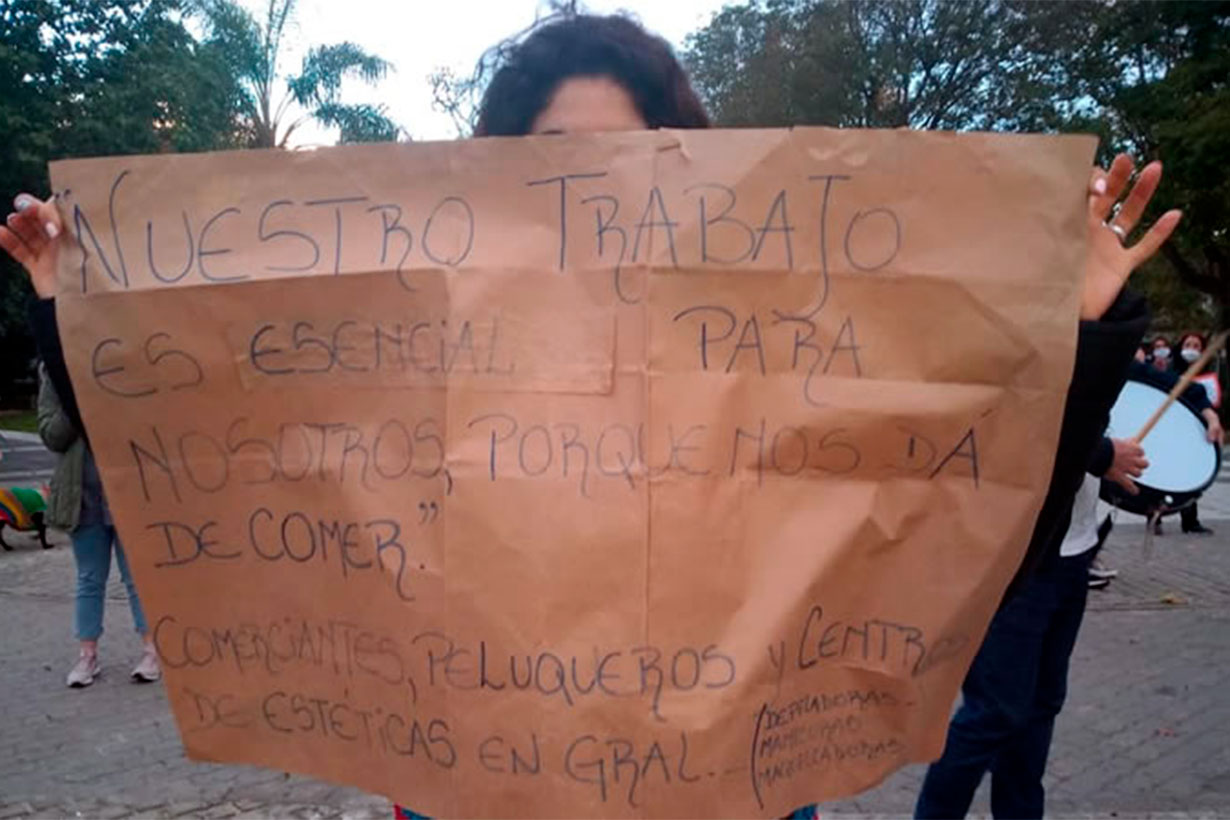 "NUESTRO TRABAJO
ES ESENCIAL PARA
NOSOTROS, PORQUE NOS DÁ
DE COMER."
COMERCIANTES, PELUQUEROS y CENTROS
DE ESTÉTICAS EN GRAL.-
(DEPILADORAS-